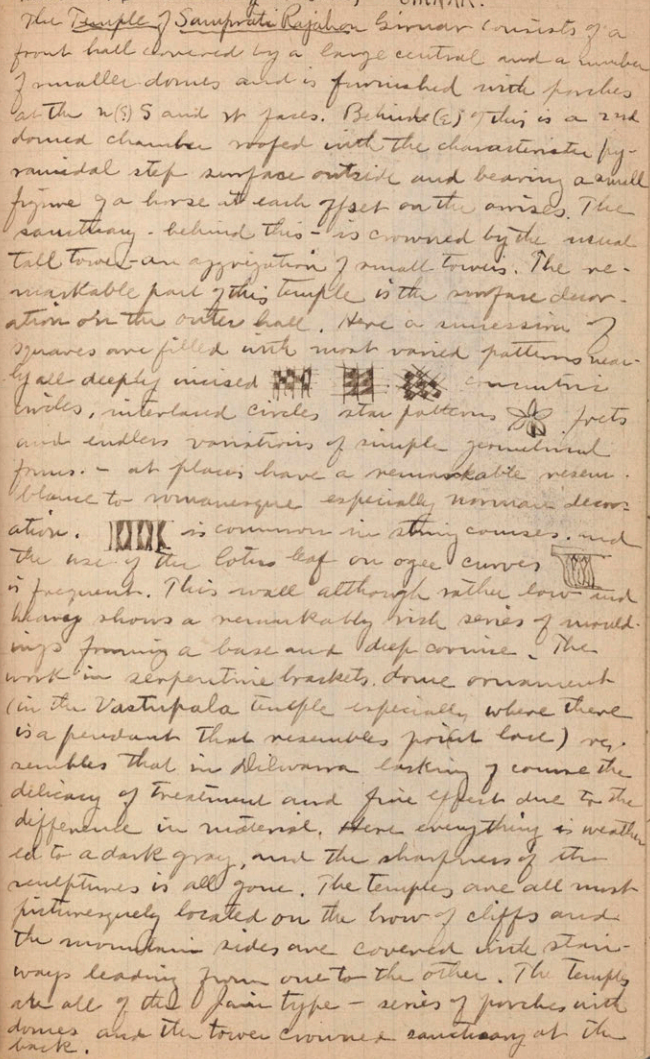 GIRNAR.
The Temple of Samprati Rajah on Girnar consists of a
front hall covered by a large central and a number
of smaller domes and is furnished with porches
at the n(?) S and W faces. Behind (E) of this is a 2nd
domed chamber roofed with the characteristic py-
ramidal step surface outside and bearing a small
figure of a horse at each offset on the arrises. The
sanctuary - behind this - is crowned by the usual
tall tower - an aggregation of small towers. The re-
markable part of this temple is the surface decor-
ation on the outer hall. Here a succession of
squares are filled with most varied patterns near-
ly all deeply incised concentric
circles, interlaced circles star patterns frets
and endless variations of simple geometrical
forms. - at places have a remarkable resem-
blance to romanesque especially norman decor-
ation. is common in string courses. and
the use of the lotus leaf on ogee curves
is frequent. This wall although rather low and
heavy shows a remarkably rich series of mould-
ings forming a base and deep cornice. The
work in serpentine brackets. dome ornament
(in the Vastupala temple especially where there
is a pendant that resembles point lace) re-
sembles that in Dilwarra lacking of course the
delicacy of treatment and fine effect due to the
difference in material. Here everything is weather
ed to a dark gray, and the sharpness of the
sculptures is all gone. The temples are all most
picturesquely located on the brow of cliffs and
the mountain sides are covered with stair-
ways leading from one to the other. The temples
are all of the Jain type - series of porches with
domes and the tower crowned sanctuary at the
back.